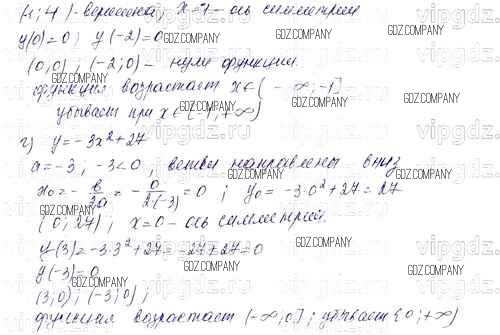 (1; 4) - вершина; x = 1 - ось симметрии
y(0) = 0; y(-2) = 0
(0; 0); (-2; 0) - нули функции.
функция возрастает x ∈ (-∞; -1]
убывает при x ∈ (-1; +∞)
г) y = -3x² + 27
a = -3; -3 < 0, ветви направлены вниз
x₀ = -в/2a = -0/2·(-3) = 0; y₀ = -3·0² + 27 = 27
(0; 27); x = 0 - ось симметрии.
y(3) = -3·3² + 27 = -27 + 27 = 0
y(-3) = 0
(3; 0); (-3; 0);
функция возрастает (-∞; 0]; убывает [0; +∞)
GDZ.COMPANY
vipgdz.ru